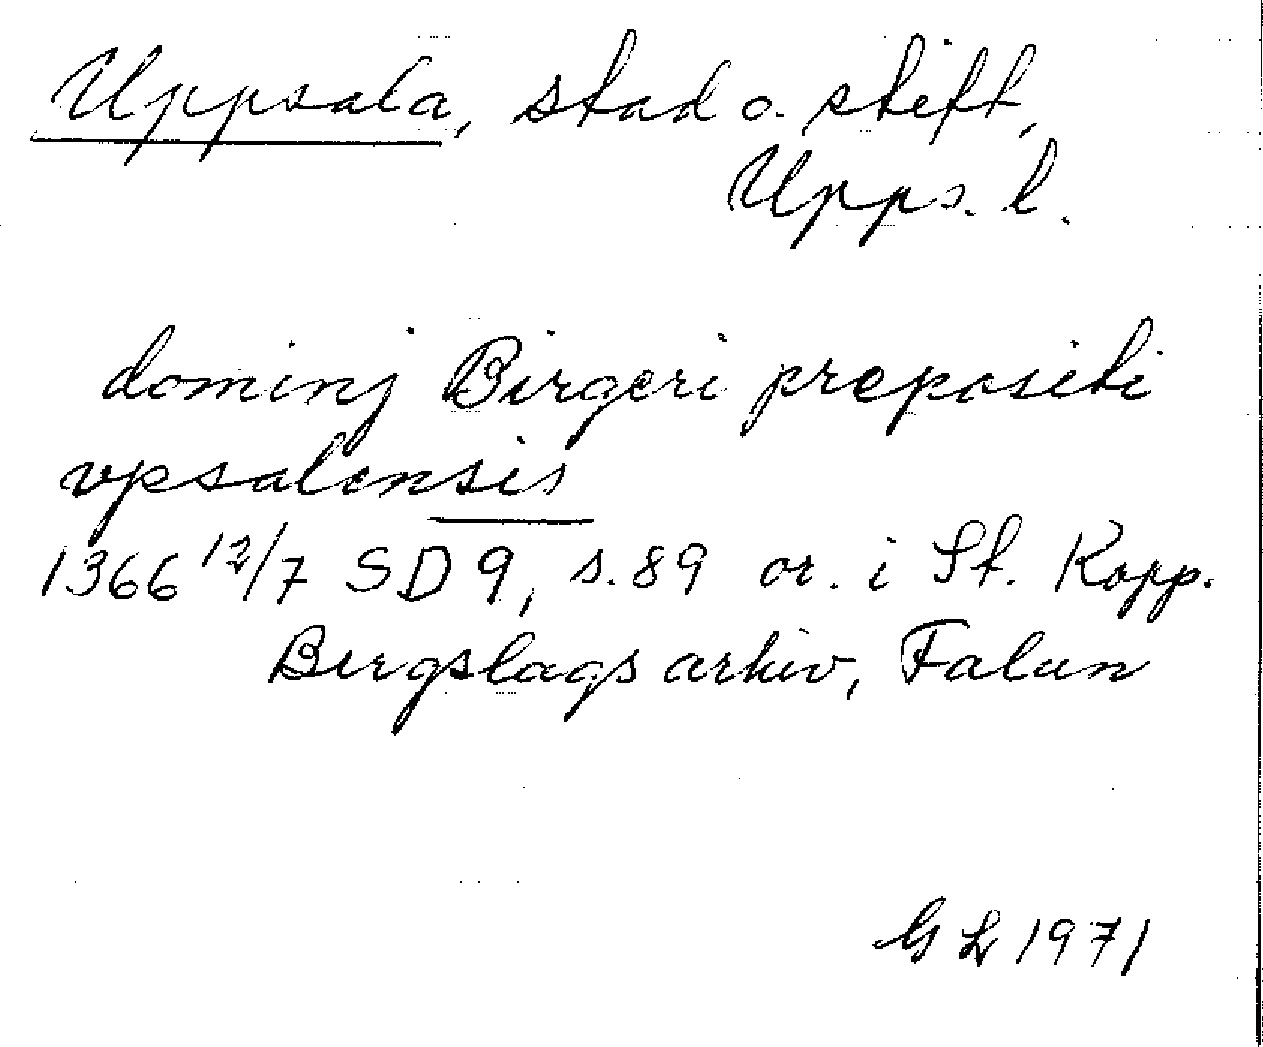 Uppsala, stad o. stift,
Upps. l.
dominj Birgeri prepositi
vpsalensis
1366 12/7 SD 9, s. 89 or. i St. Kopp.
Bergslags arkiv, Falun
G L 1971